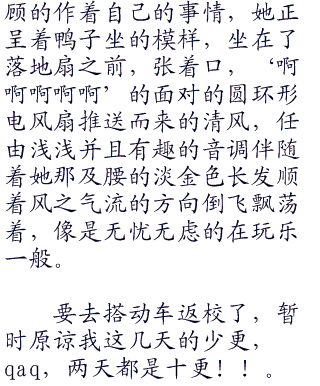 顾的作着自己的事情，她正
呈着鸭子坐的模样，坐在了
落地扇之前，张着口，‘啊
啊啊啊啊’的面对的圆环形
电风扇推送而来的清风，任
由浅浅并且有趣的音调伴随
着她那及腰的淡金色长发顺
着风之气流的方向倒飞飘荡
着，像是无忧无虑的在玩乐
一般。
要去搭动车返校了，暂
时原谅我这几天的少更，
qaq，两天都是十更！！。